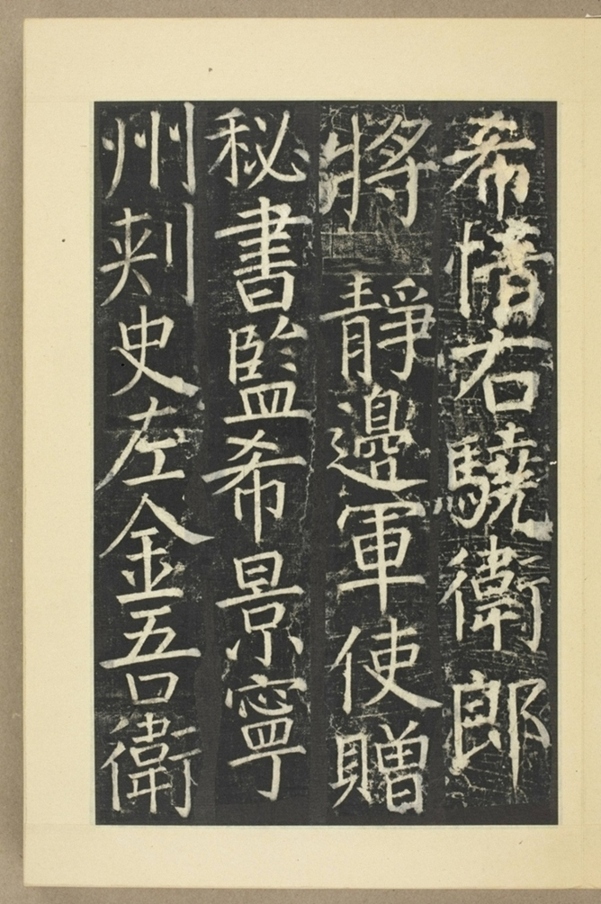 希情右驍衛郎
將 靜邊軍使贈
秘書監希景寧
州刾史左金吾衛